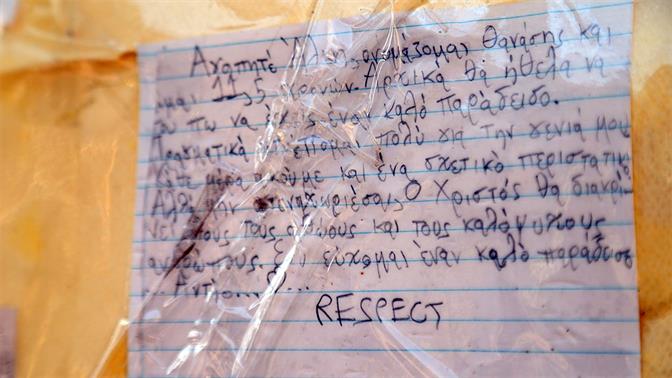 Αγαπητέ Άλκη, ονομάζομαι Θανάσης και
είμαι 11,5 χρονών. Αρχικά θα ήθελα να
σου πω να έχεις έναν καλό παράδεισο.
Πραγματικά ντρέπομαι πολύ για την γενιά μου
Κάθε μέρα ακούμε και ένα σχετικό περιστατικό
Αλλά μην στεναχωριέσαι, Ο Χριστός θα διακρί-
νει τους αθώους και τους καλόψυχους
ανθρώπους. Σου εύχομαι έναν καλό παράδεισο
Αντίο...
RESPECT